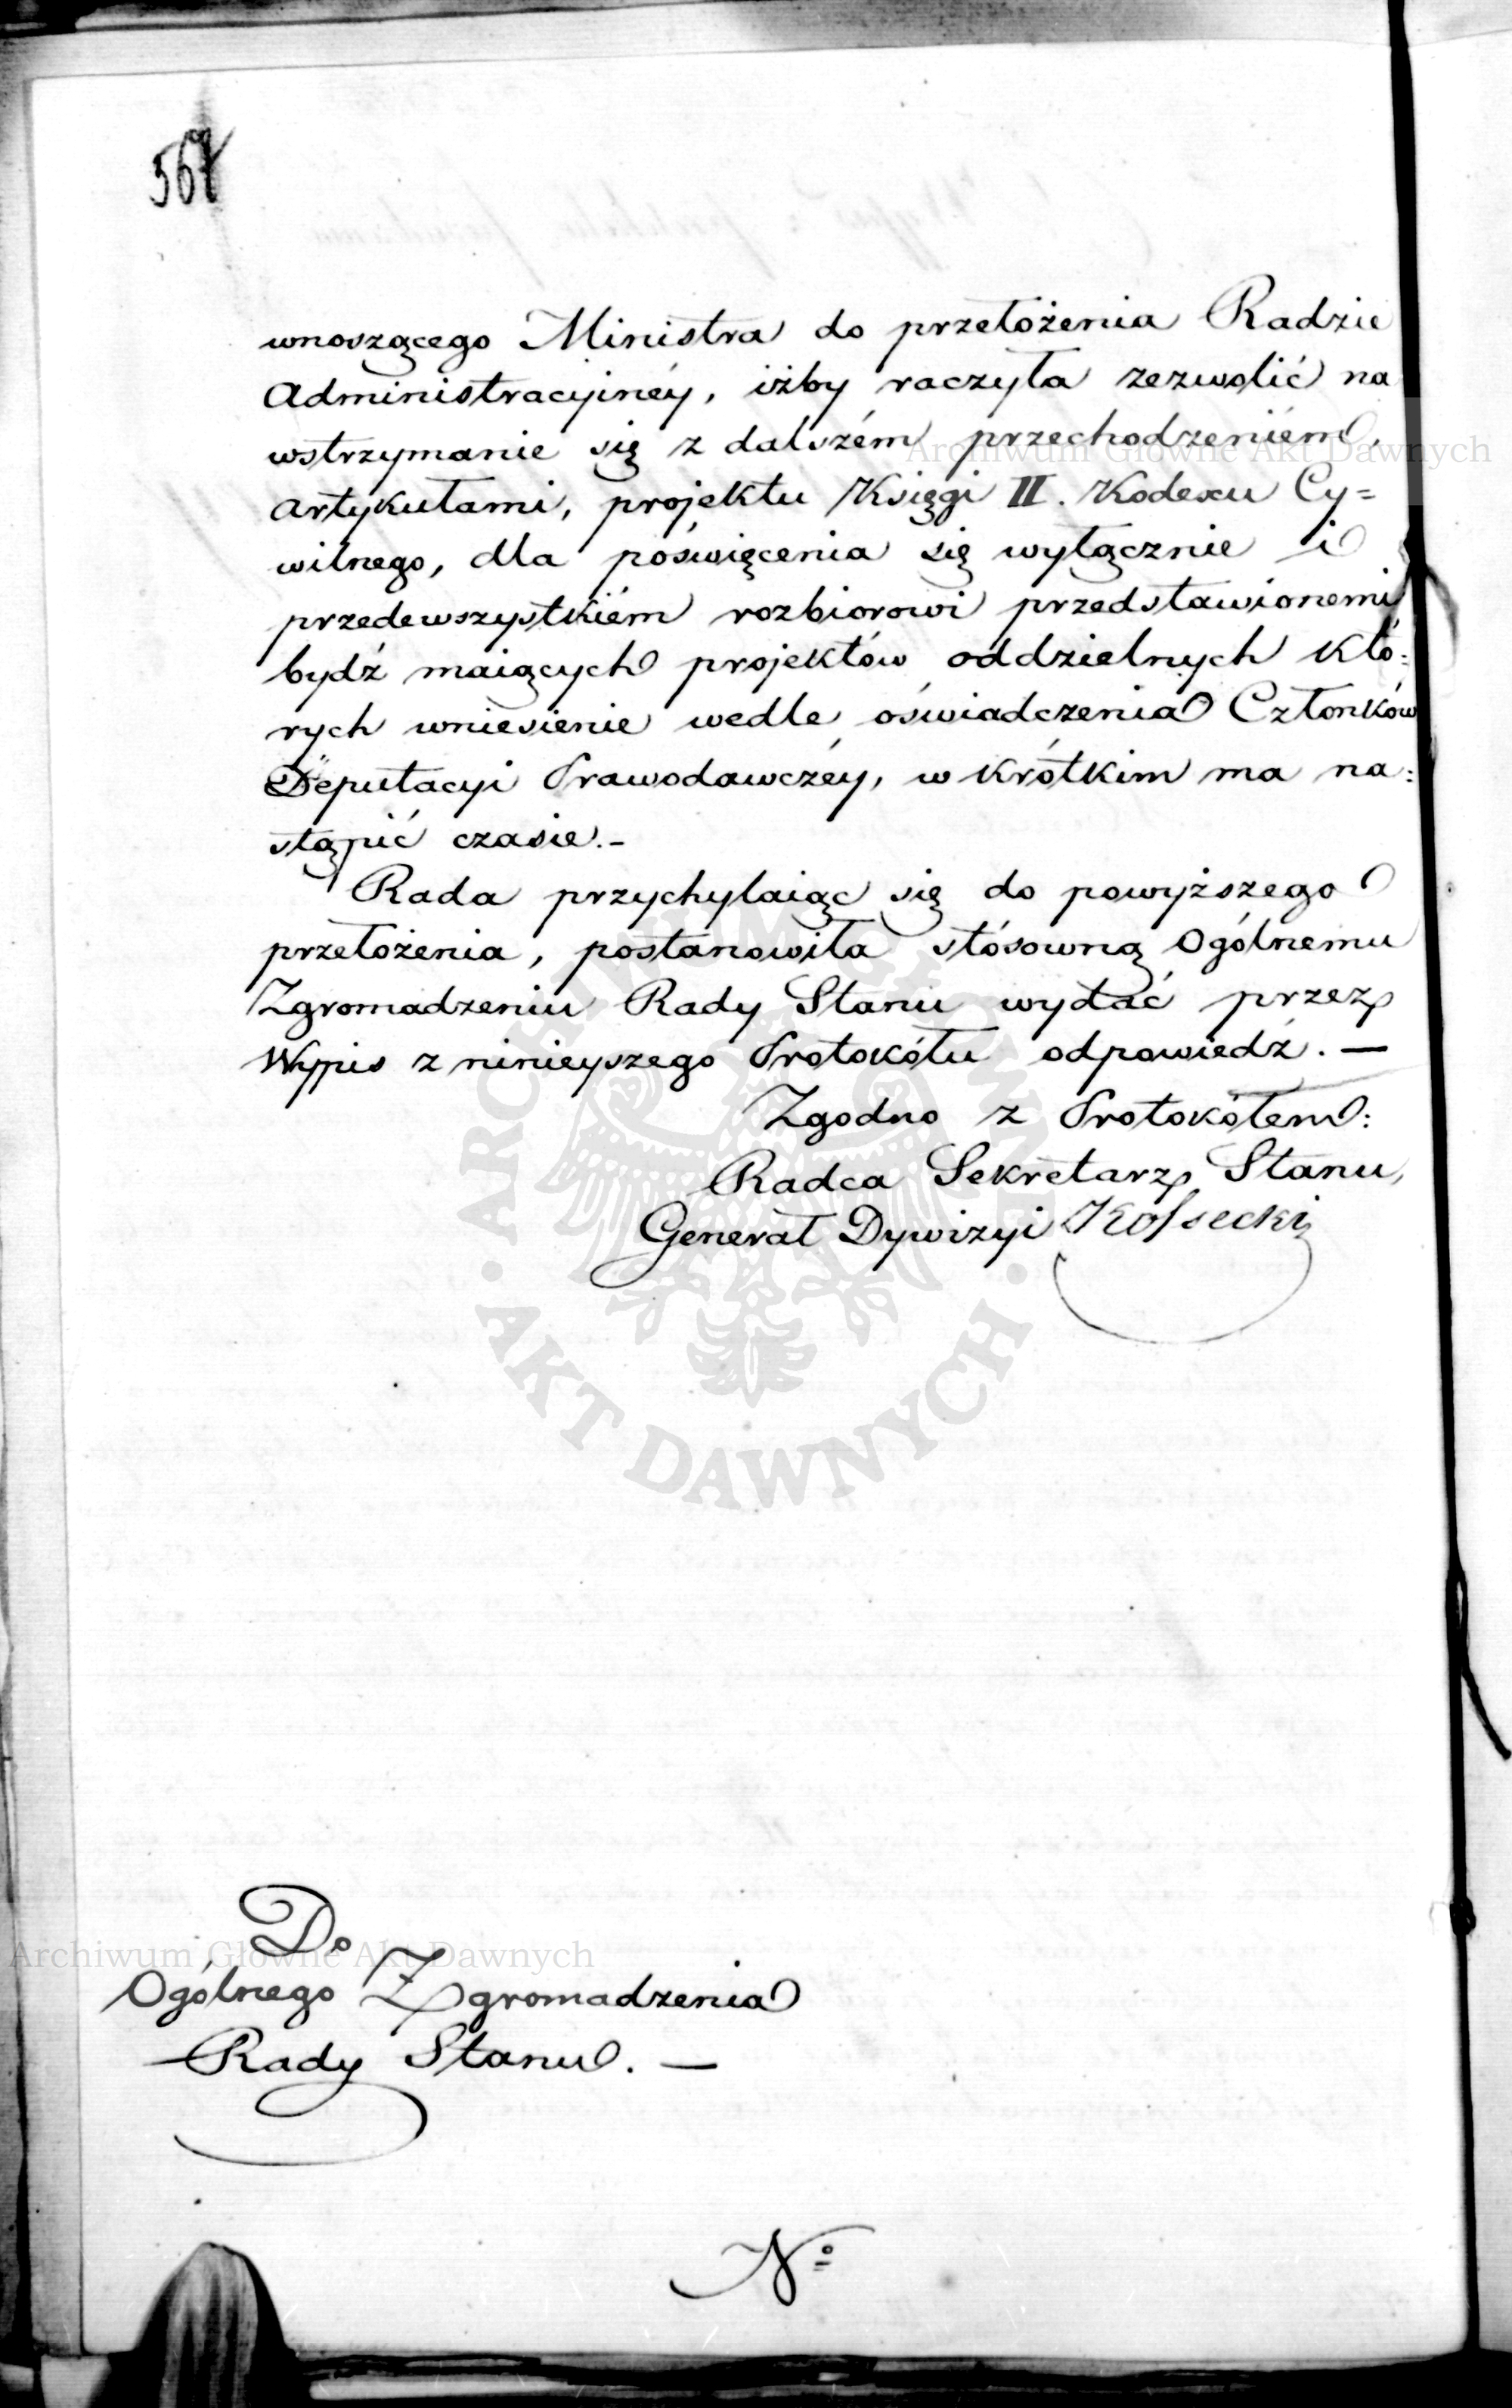 567
wnoszącego Ministra do przełożenia Radzie
Administracyinéy, iżby raczyła zezwolić na
wstrzymanie się z dalszém przechodzeniem,
artykułami, projektu Księgi II. Kodexu Cy=
wilnego, dla poświęcenia się wyłącznie i
przedewszystkiém rozbiorowi przedstawionemi
bydź maiących projektów oddzielnych któ=
rych wniesienie wedle oświadczenia Członków
Deputacyi Prawodawczéy, w krótkim ma na=
stąpić czasie.-
Rada przychylaiąc się do powyższego
przełożenia, postanowiła stósowną Ogólnemu
Zgromadzeniu Rady Stanu wydać przez
Wypis z ninieyszego Protokółu odpowiedź. —
Zgodno z Protokółem:
Radca Sekretarz Stanu,
Generał Dywizyi Kossecki
Do
Ogólnego Zgromadzenia
Rady Stanu. —
Nº
Archiwum Główne Akt Dawnych
Archiwum Główne Akt Dawnych
ARCHIWUM GŁÓWNE AKT DAWNYCH